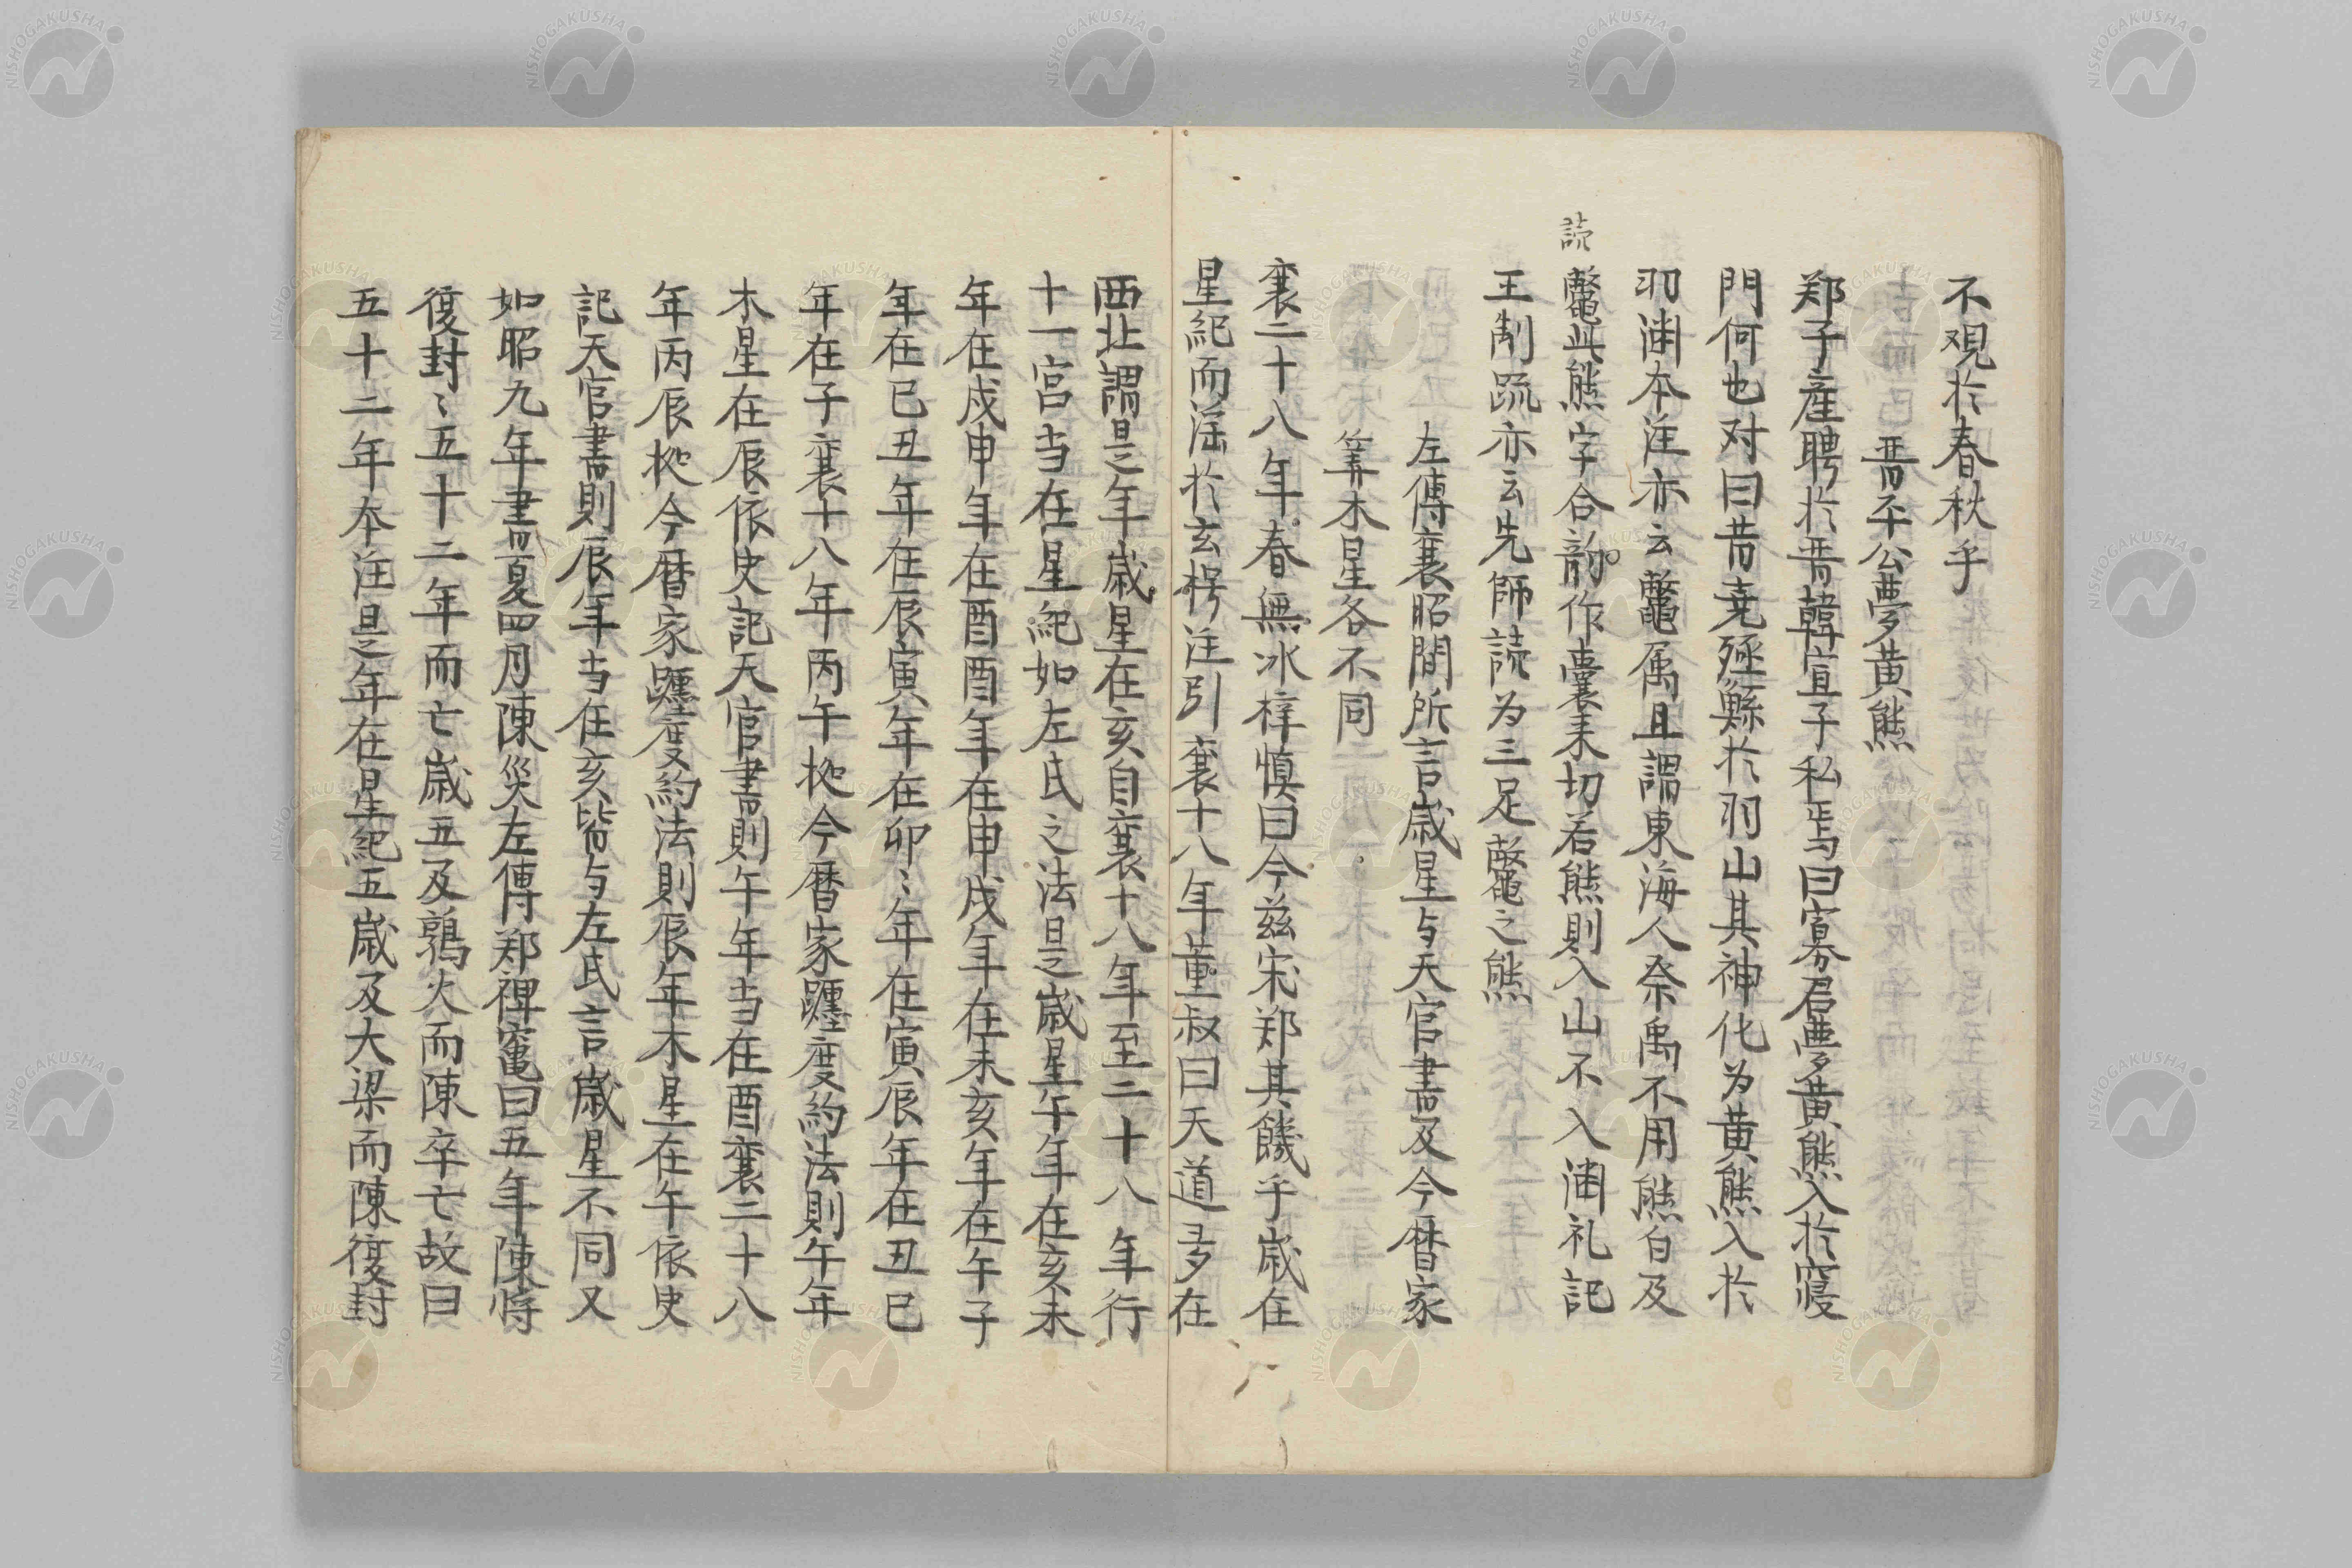 不观於春秋乎
晋平公夢黄熊
郑子産聘於晋韓宣子私焉曰寡君夢黄熊入於寢
門何也对曰昔尭殛鯀於羽山其神化为黄熊入於
羽渊本注亦云鼈属且謂東海人祭禹不用熊白及
読
鼈此熊字合韵作囊来切若熊則入山不入渊礼記
王制䟽亦云先師読为三足鼈之熊
左傳襄昭間所言歳星与天官書及今暦家
筭木星各不同
襄二十八年春無冰梓慎曰今兹宋郑其饑乎歳在
星紀而滛於玄枵注引襄十八年董叔曰天道多在
西北謂是年歳星在亥自襄十八年至二十八年行
十一宮当在星紀如左氏之法是歳星午年在亥未
年在戍申年在酉酉年在申戍年在未亥年在午子
年在巳丑年在辰寅年在卯〻年在寅辰年在丑巳
年在子襄十八年丙午扥今暦家躔度約法則午年
木星在辰依史記天官書則午年当在酉襄二十八
年丙辰扥今暦家躔度約法則辰年木星在午依史
記天官書則辰年当在亥皆与左氏言歳星不同又
如昭九年書夏四月陳災左傳郑裨竈曰五年陳将
復封〻五十二年而亡歳五及鶉火而陳卒亡故曰
五十二年本注是年在星紀五歳及大梁而陳復封
NISHOGAKUSHA